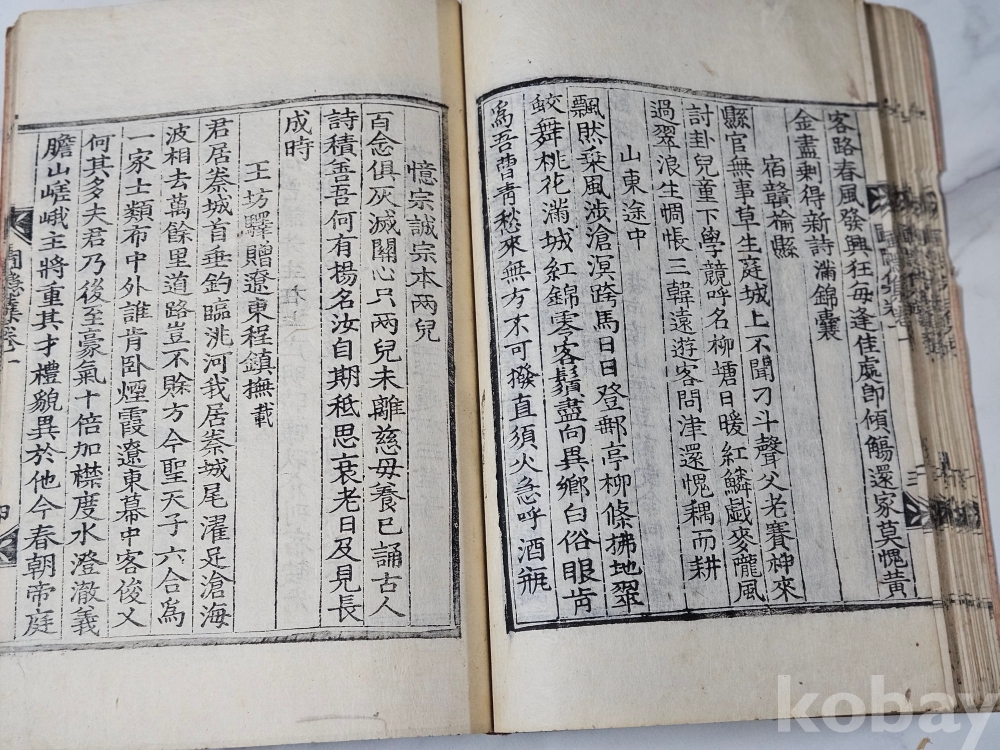 客路春風發興狂每逢佳處即傾觴還家莫愧黃
金盡剩得新詩滿錦囊
宿贛楡縣
縣官無事草生庭城上不聞刁斗聲父老賽神來
討卦兒童下學競呼名柳塘日暖紅鱗戱麥隴風
過翠浪生惆悵三韓遠遊客問津還愧耦而耕
山東途中
飄然乘風涉滄溟跨馬日日登郵亭柳條拂地翠
蛟舞桃花滿城紅錦零客鬚盡向異鄕白俗眼肯
爲吾曹靑愁來無方不可撥直須火急呼酒甁
憶宗誠宗本兩兒
百念俱灰滅關心只兩兒未離慈母養已誦古人
詩積善吾何有揚名汝自期秪思衰老日及見長
成時
王坊驛贈遼東程鎮撫載
君居秦城首垂釣臨洮河我居秦城尾濯足滄海
波相去萬餘里道路豈不賒方今聖天子六合爲
一家士類布中外誰肯卧煙霞遼東幕中客俊乂
何其多夫君乃後至豪氣十倍加襟度水澄澈義
膽山嵯峨主將重其才禮貌異於他今春朝帝庭
四
kobay